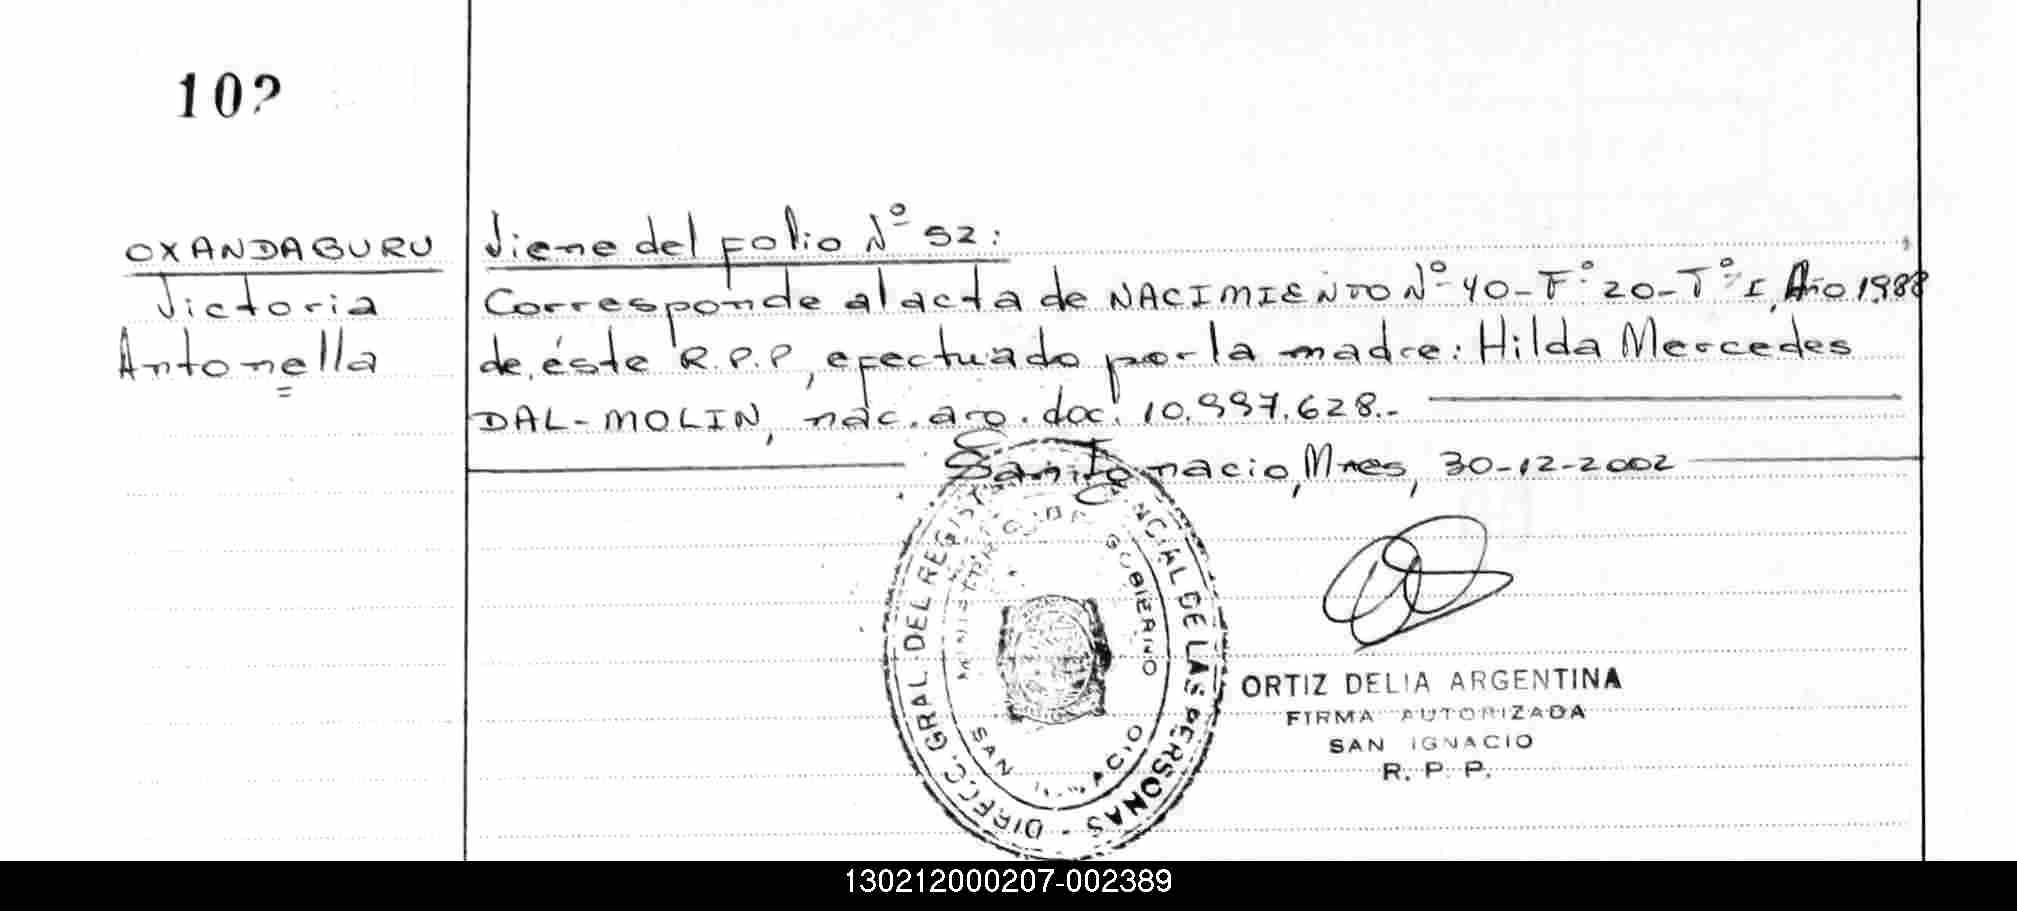 10?
OXANDABURU
Victoria
Antonella
Viene del folio Nº 92:
Corresponde al acta de NACIMIENTO Nº 40-Fº 20-Tº I, Año 1988
de éste R.P.P, efectuado por la madre: Hilda Mercedes
DAL-MOLIN, nac. arg. doc. 10.997.628.-
San Ignacio, Mnes, 30-12-2002
DIRECC. GRAL. DEL REGIST NCIAL DE LAS PERSONAS -
GUBIERNO
SAN
ORTIZ DELIA ARGENTINA
FIRMA AUTORIZADA
SAN IGNACIO
R. P. P.
130212000207-002389